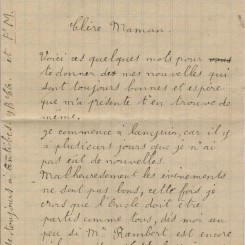 Chère Maman.
Voici ces quelques mots pour
te donner des mes nouvelles qui
sont toujours bonnes et espère
que ma présente t'en trouve de
meme.
je commence à languir, car il y
à plusieurs jours que je n'ai
pas eût de nouvelles.
Malheuresement les évènements
ne sont pas bons, cette fois je
crois que l'Oncle doit être
partis comme tous, dis moi un
peu si Mr Rambert est encore
toujours